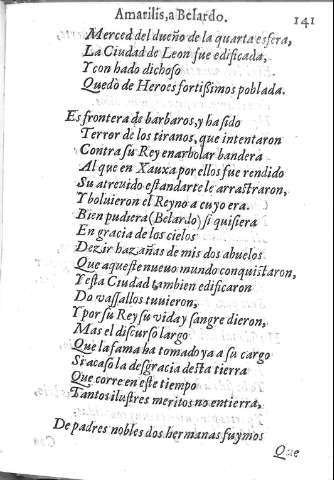 Amarilis, a Belardo. 141
Merced del dueño de la quarta esfera,
La Ciudad de Leon fue edificada,
Y con hado dichoso
Quedò de Heroes fortißimos poblada.
Es frontera de barbaros, y ha sido
Terror de los tiranos, que intentaron
Contra su Rey enarbolar bandera
Al que en Xauxa por ellos fue rendido
Su atreuido estandarte le arrastraron,
Y boluieron el Reyno a cuyo era.
Bien pudiera (Belardo) si quisiera
En gracia de los cielos
Dezir hazañas de mis dos abuelos
Que aqueste nueuo mundo conquistaron,
Y esta Ciudad tambien edificaron
Do vassallos tuuieron,
Y por su Rey su vida y sangre dieron,
Mas el discurso largo
Que la fama ha tomado ya a su cargo
Si acaso la desgracia desta tierra
Que corre en este tiempo
Tantos ilustres meritos no entierra,
De padres nobles dos hermanas fuymos
Que